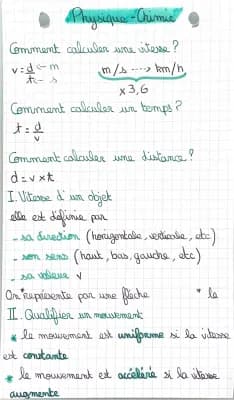 Physique-Chimie
Comment calculer une vitesse ?
v = d ← m
t ← s
m/s ----> km/h
x 3,6
Comment calculer un temps ?
t = d
v
Comment calculer une distance ?
d = v x t
I. Vitesse d'un objet
elle est définie par
- sa direction (horizontale, verticale, etc)
- son sens (haut, bas, gauche, etc)
- sa valeur v
On représente par une flèche * le
II. Qualifier un mouvement
* le mouvement est uniforme si la vitesse
est constante
* le mouvement est accéléré si la vitesse
augmente